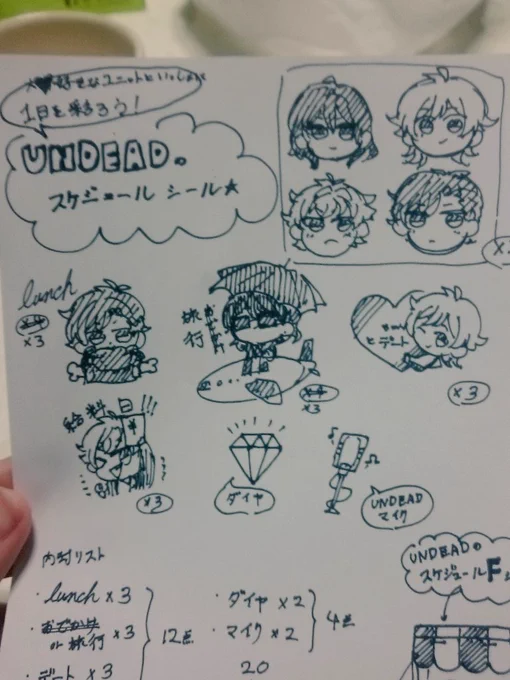 好きなユニットといっしょに
1日を彩ろう!
UNDEAD。
スケジュール シール★
lunch
×3
旅行
×3
デート
×3
給料日!!
¥
×3
ダイヤ
UNDEAD
マイク
内封リスト
・lunch ×3
・おでかけ
or 旅行 ×3
・デート ×3
12点
・ダイヤ ×2
・マイク ×2
4点
20
UNDEADの
スケジュールF